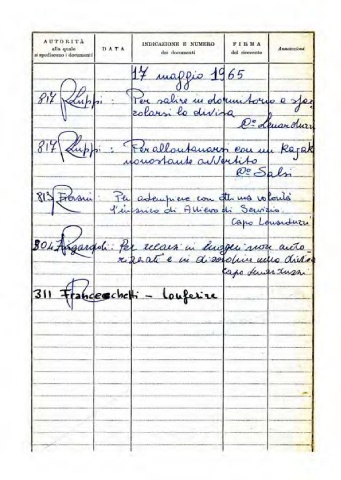 AUTORITÀ
alla quale
si spediscono i documenti
DATA
INDICAZIONE E NUMERO
dei documenti
FIRMA
del ricevente
Annotazioni
17 maggio 1965
817 Luppi : Per salire in dormitorio e
zolarsi la divisa
817 Luppi : Per allontanarsi con un Kajak
nonostante avvertito
Salsi
813 : Per adempiere con ottima volontà
l'incarico di Allievo di Servizio.
Capo Lonarduzzi
304 : Per recarsi in luoghi non auto-
rizzati e in disordine nella divisa
Capo
311 Franceschetti -